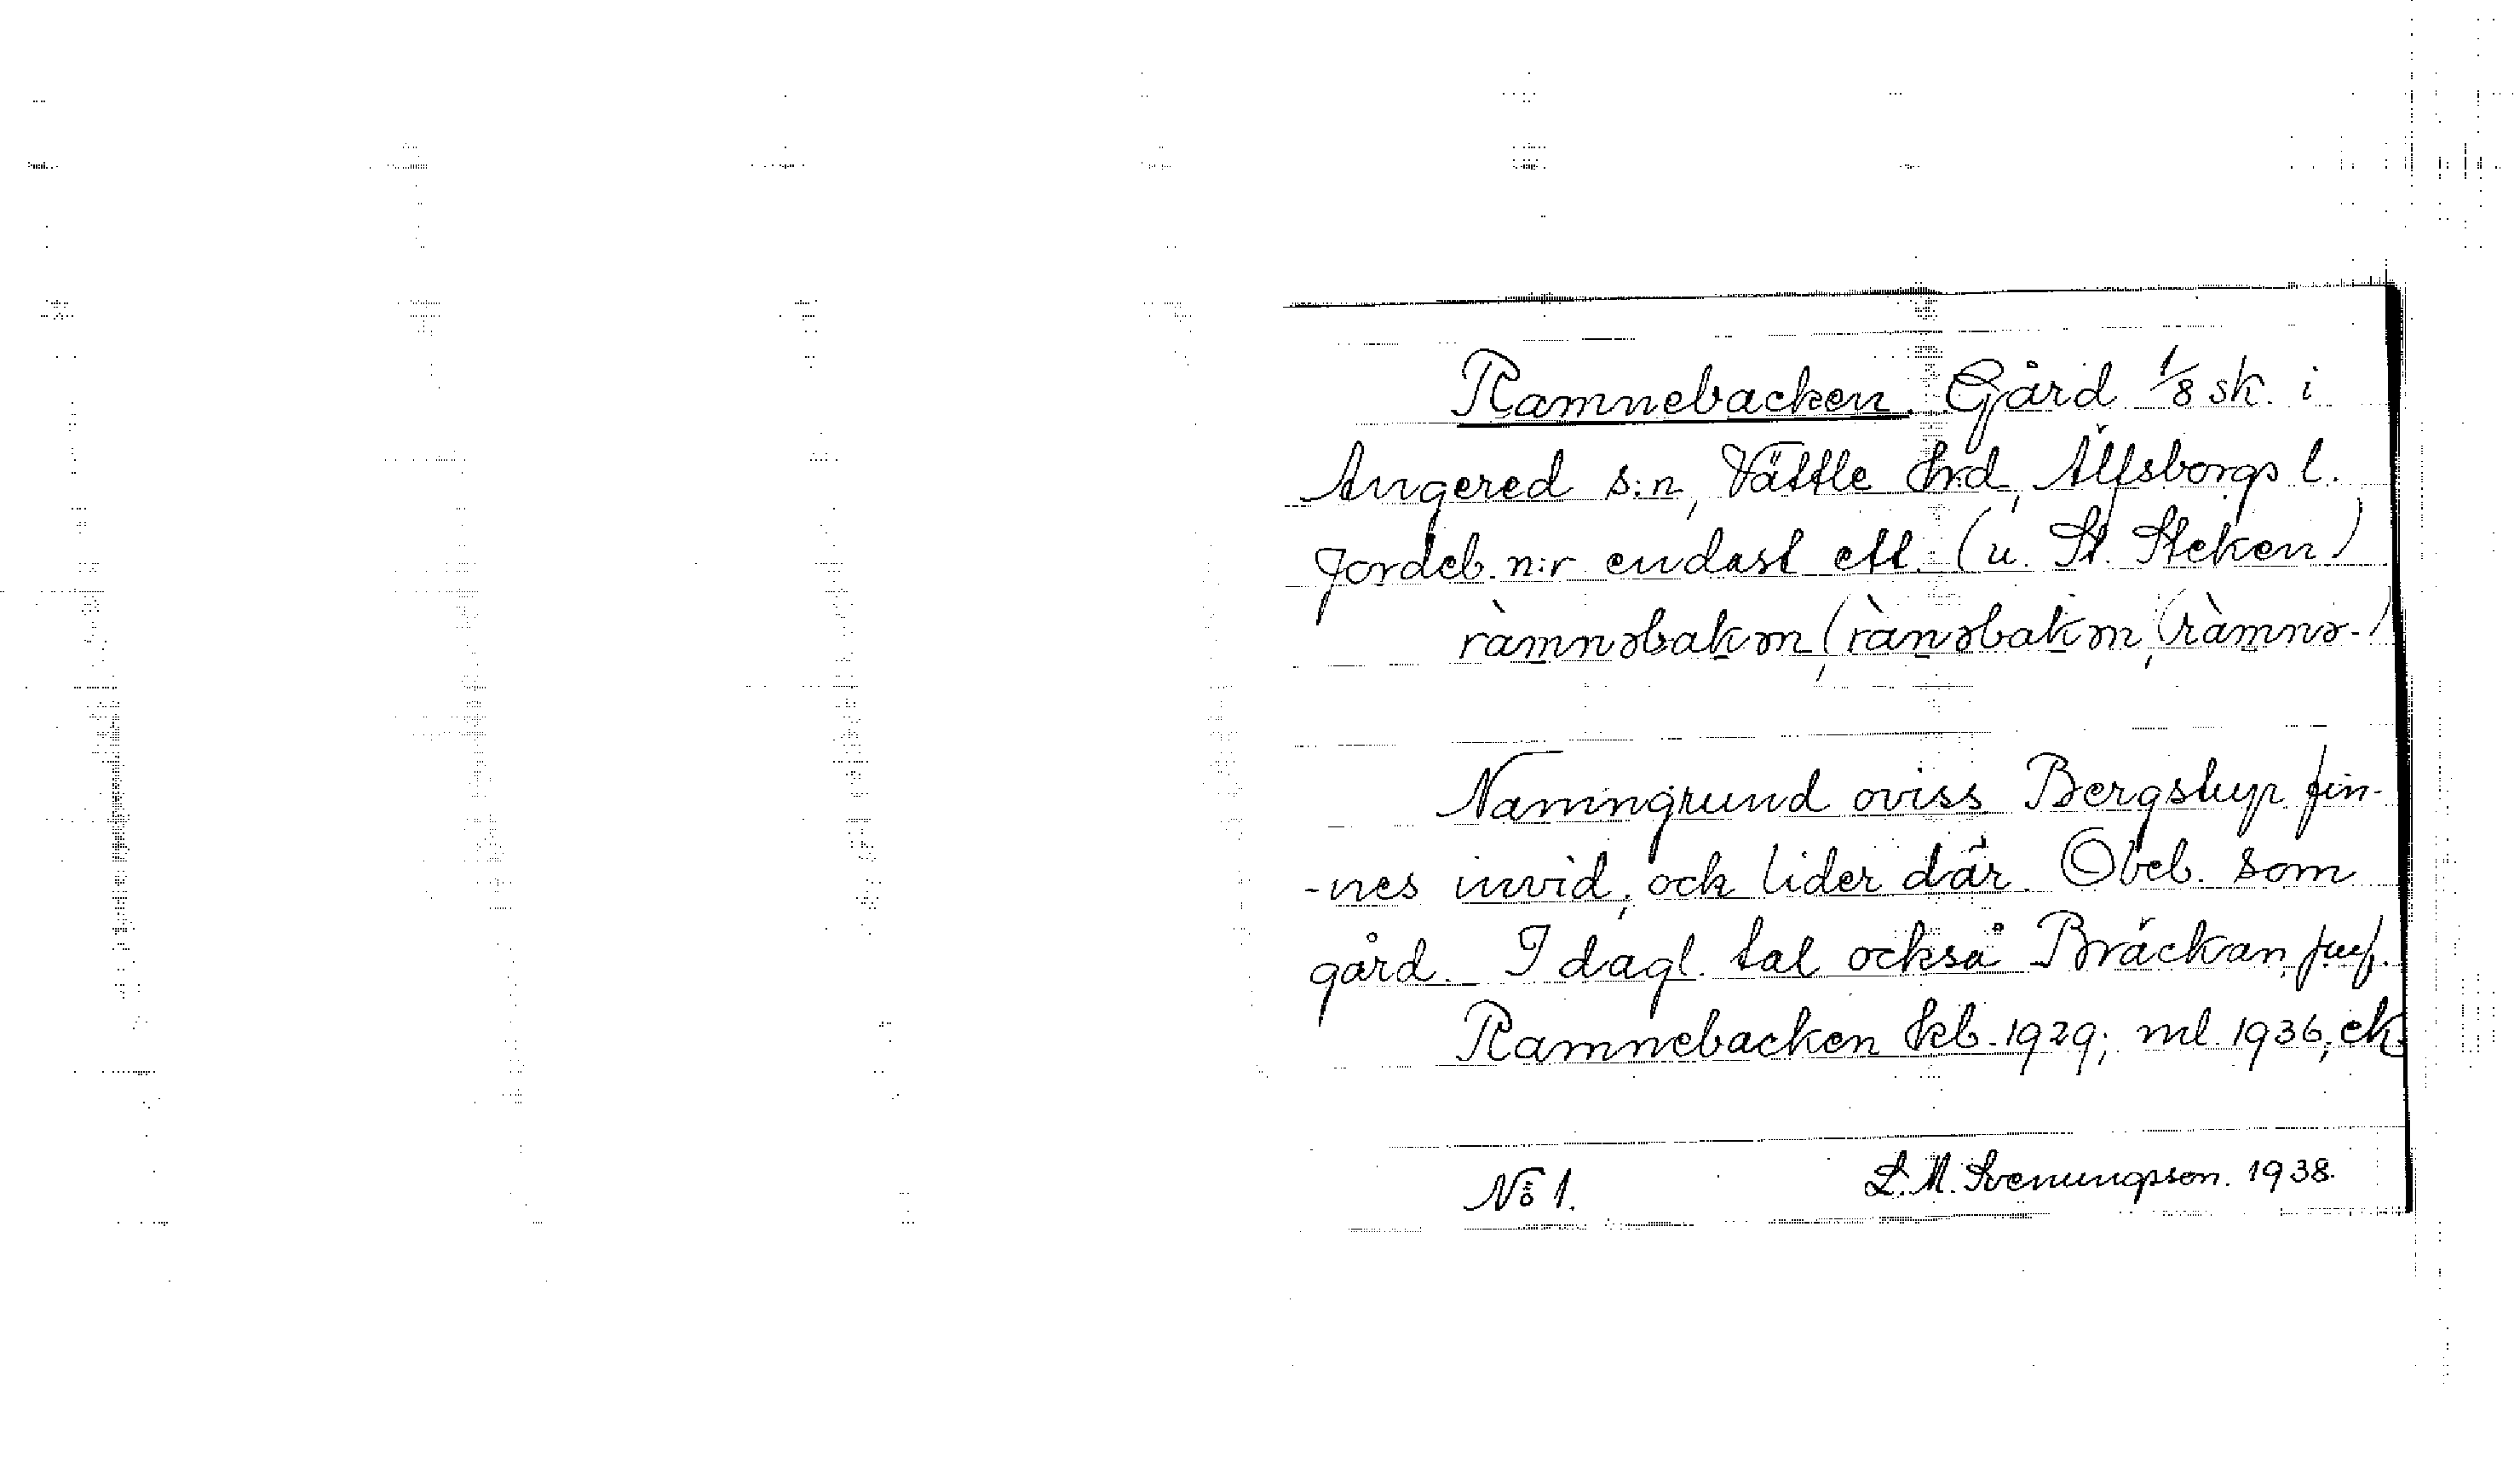 Ramnebacken. Gård 1/8 sk. i
Angered s:n, Vättle hrd, Älfsborgs l.
Jordeb. n:r endast ett. (u. St. Steken)
ràmnəbakən, (rànəbakən, (ràmnə-)
Namngrund oviss. Bergstup fin-
-nes invid, och lider där. Obeb. som
gård. I dagl. tal också Bräckan, juf.
Ramnebacken kb. 1929; ml. 1936, ek.
No 1.
L. M. Svenungsson. 1938.